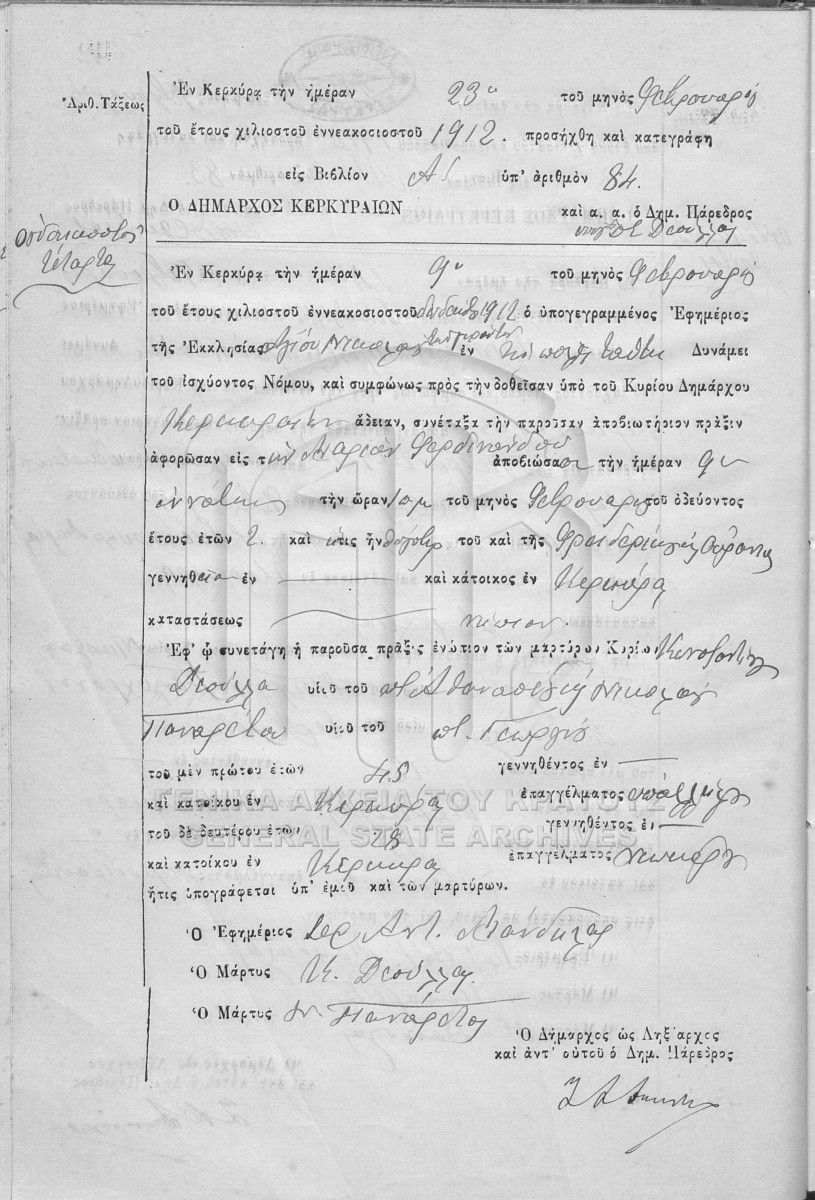 Ἀριθ. Τάξεως
Ἐν Κερκύρᾳ τὴν ἡμέραν 23 τοῦ μηνὸς Φεβρουαρίου
τοῦ ἔτους χιλιοστοῦ ἐννεακοσιοστοῦ 1912. προσήχθη καὶ κατεγράφη
εἰς Βιβλίον Α ὑπ' ἀριθμὸν 84.
Ο ΔΗΜΑΡΧΟΣ ΚΕΡΚΥΡΑΙΩΝ καὶ α. α. ὁ Δημ. Πάρεδρος
Ὀγδοηκοστὸς
τέταρτος
Ἐν Κερκύρᾳ τὴν ἡμέραν 9 τοῦ μηνὸς Φεβρουαρίου
τοῦ ἔτους χιλιοστοῦ ἐννεακοσιοστοῦ δωδεκάτου 1912 ὁ ὑπογεγραμμένος Ἐφημέριος
τῆς Ἐκκλησίας Ἁγίου Νικολάου ἐν τῇ πόλει ταύτῃ Δυνάμει
τοῦ ἰσχύοντος Νόμου, καὶ συμφώνως πρὸς τὴν δοθεῖσαν ὑπὸ τοῦ Κυρίου Δημάρχου
Κερκυραίων ἄδειαν, συνέταξα τὴν παροῦσαν ἀποβιωτήριον πρᾶξιν
ἀφορῶσαν εἰς τὴν Μαρίαν Φερδινάνδου ἀποβιώσασαν τὴν ἡμέραν 9
ἐννάτην τὴν ὥραν 1 πμ τοῦ μηνὸς Φεβρουαρίου τοῦ ὁδεύοντος
ἔτους ἐτῶν 2. καὶ ἥτις ἦν θυγάτηρ τοῦ καὶ τῆς
γεννηθεῖσα ἐν καὶ κάτοικος ἐν Κερκύρᾳ
καταστάσεως νήπιον.
Ἐφ' ᾧ συνετάγη ἡ παροῦσα πρᾶξις ἐνώπιον τῶν μαρτύρων Κυρίων Κωνσταντίνου
Δεούλλα υἱοῦ τοῦ ποτὲ Ἀθανασίου καὶ Νικολάου
Παναρέτου υἱοῦ τοῦ ποτ. Γεωργίου
τοῦ μὲν πρώτου ἐτῶν 45 γεννηθέντος ἐν
καὶ κατοίκου ἐν Κερκύρᾳ ἐπαγγέλματος ὑπαλλήλου
τοῦ δὲ δευτέρου ἐτῶν 28 γεννηθέντος ἐν
καὶ κατοίκου ἐν Κέρκυρα ἐπαγγέλματος
ἥτις ὑπογράφεται ὑπ' ἐμοῦ καὶ τῶν μαρτύρων.
Ὁ Ἐφημέριος Ἱερ. Ἀντ. Μάνδηλας
Ὁ Μάρτυς Κ. Δεούλλας
Ὁ Μάρτυς Ν. Πανάρετος
Ὁ Δήμαρχος ὡς Ληξίαρχος
καὶ ἀντ' αὐτοῦ ὁ Δημ. Πάρεδρος
ΓΕΝΙΚΑ ΑΡΧΕΙΑ ΤΟΥ ΚΡΑΤΟΥΣ
GENERAL STATE ARCHIVES